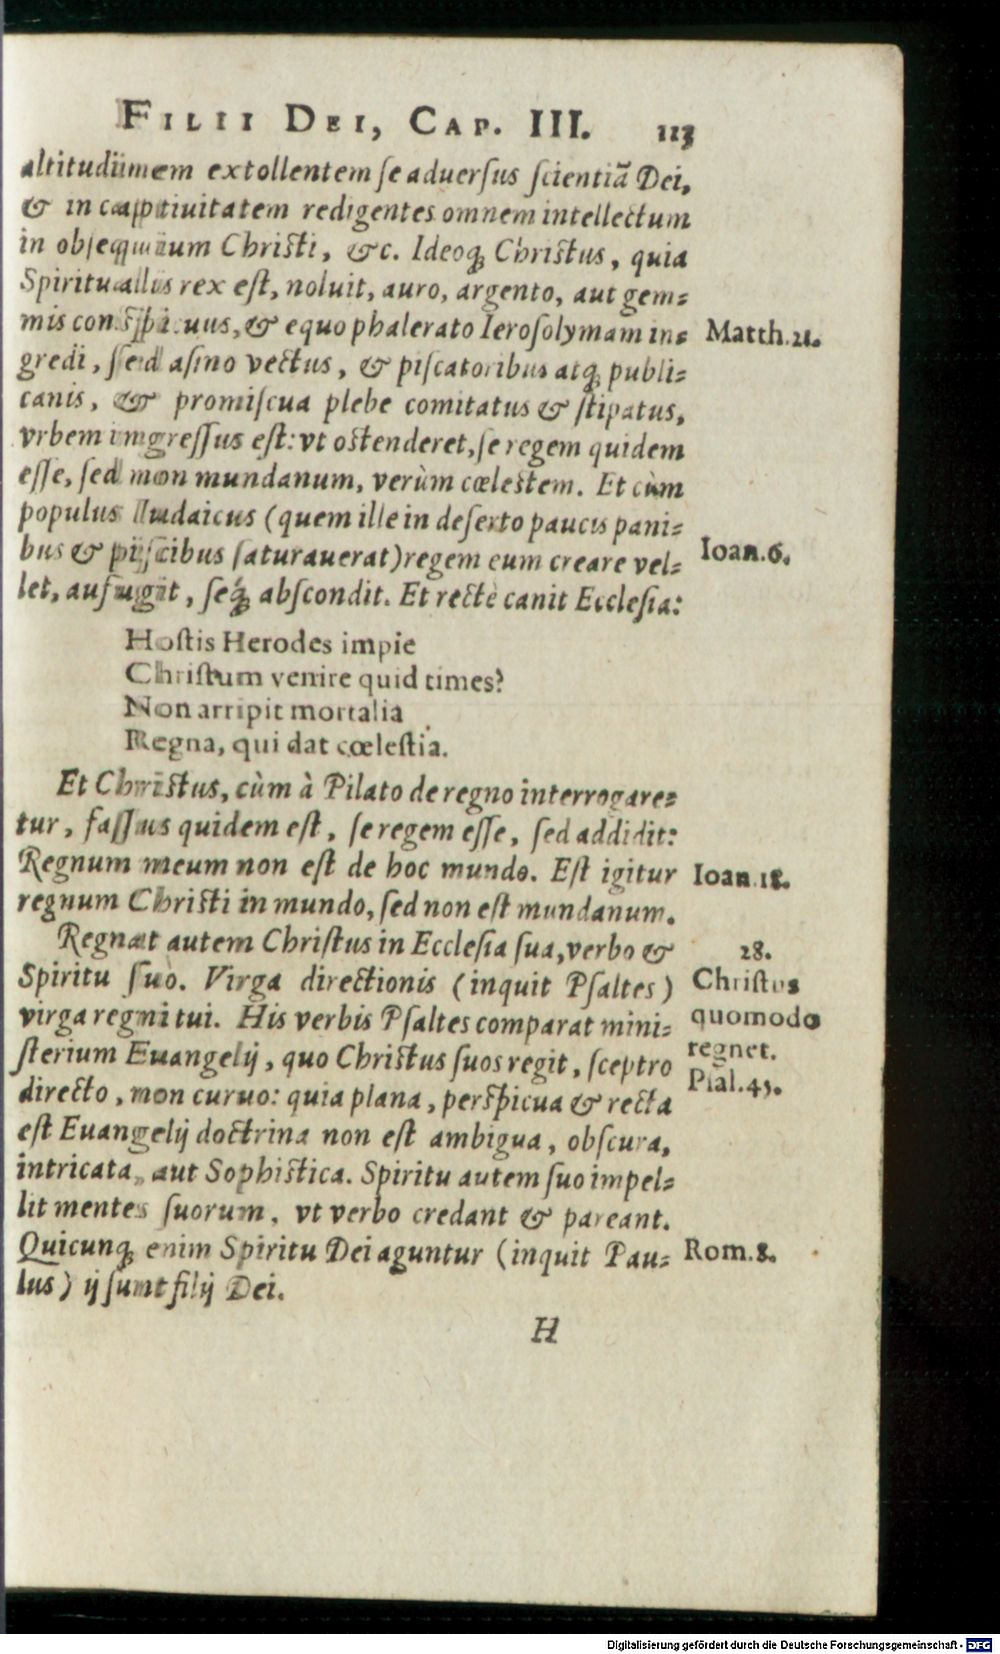 FILII DEI, CAP. III. 113
altitudinem extollentem se aduersus scientiã Dei,
& in captiuitatem redigentes omnem intellectum
in obsequium Christi, &c. Ideoq; Christus, quia
Spiritualis rex est, noluit, auro, argento, aut gem-
mis conspicuus, & equo phalerato Ierosolymam in- Matth.21.
gredi, sed asino vectus, & piscatoribus atq; publi-
canis, & promiscua plebe comitatus & stipatus,
vrbem ingressus est: vt ostenderet, se regem quidem
esse, sed non mundanum, verùm cœlestem. Et cùm
populus Iudaicus (quem ille in deserto paucis pani-
bus & piscibus saturauerat) regem eum creare vel- Ioan.6.
let, aufugit, seq́; abscondit. Et rectè canit Ecclesia:
Hostis Herodes impie
Christum venire quid times?
Non arripit mortalia
Regna, qui dat cœlestia.
Et Christus, cùm à Pilato de regno interrogare-
tur, fassus quidem est, se regem esse, sed addidit:
Regnum meum non est de hoc mundo. Est igitur Ioan.18.
regnum Christi in mundo, sed non est mundanum.
Regnat autem Christus in Ecclesia sua, verbo & 28.
Spiritu suo. Virga directionis (inquit Psaltes) Christus
virga regni tui. His verbis Psaltes comparat mini- quomodo
sterium Euangelij, quo Christus suos regit, sceptro regnet.
directo, non curuo: quia plana, perspicua & recta Psal.45.
est Euangelij doctrina non est ambigua, obscura,
intricata, aut Sophistica. Spiritu autem suo impel-
lit mentes suorum, vt verbo credant & pareant.
Quicunq; enim Spiritu Dei aguntur (inquit Pau- Rom.8.
lus) ij sunt filij Dei.
H
Digitalisierung gefördert durch die Deutsche Forschungsgemeinschaft - DFG